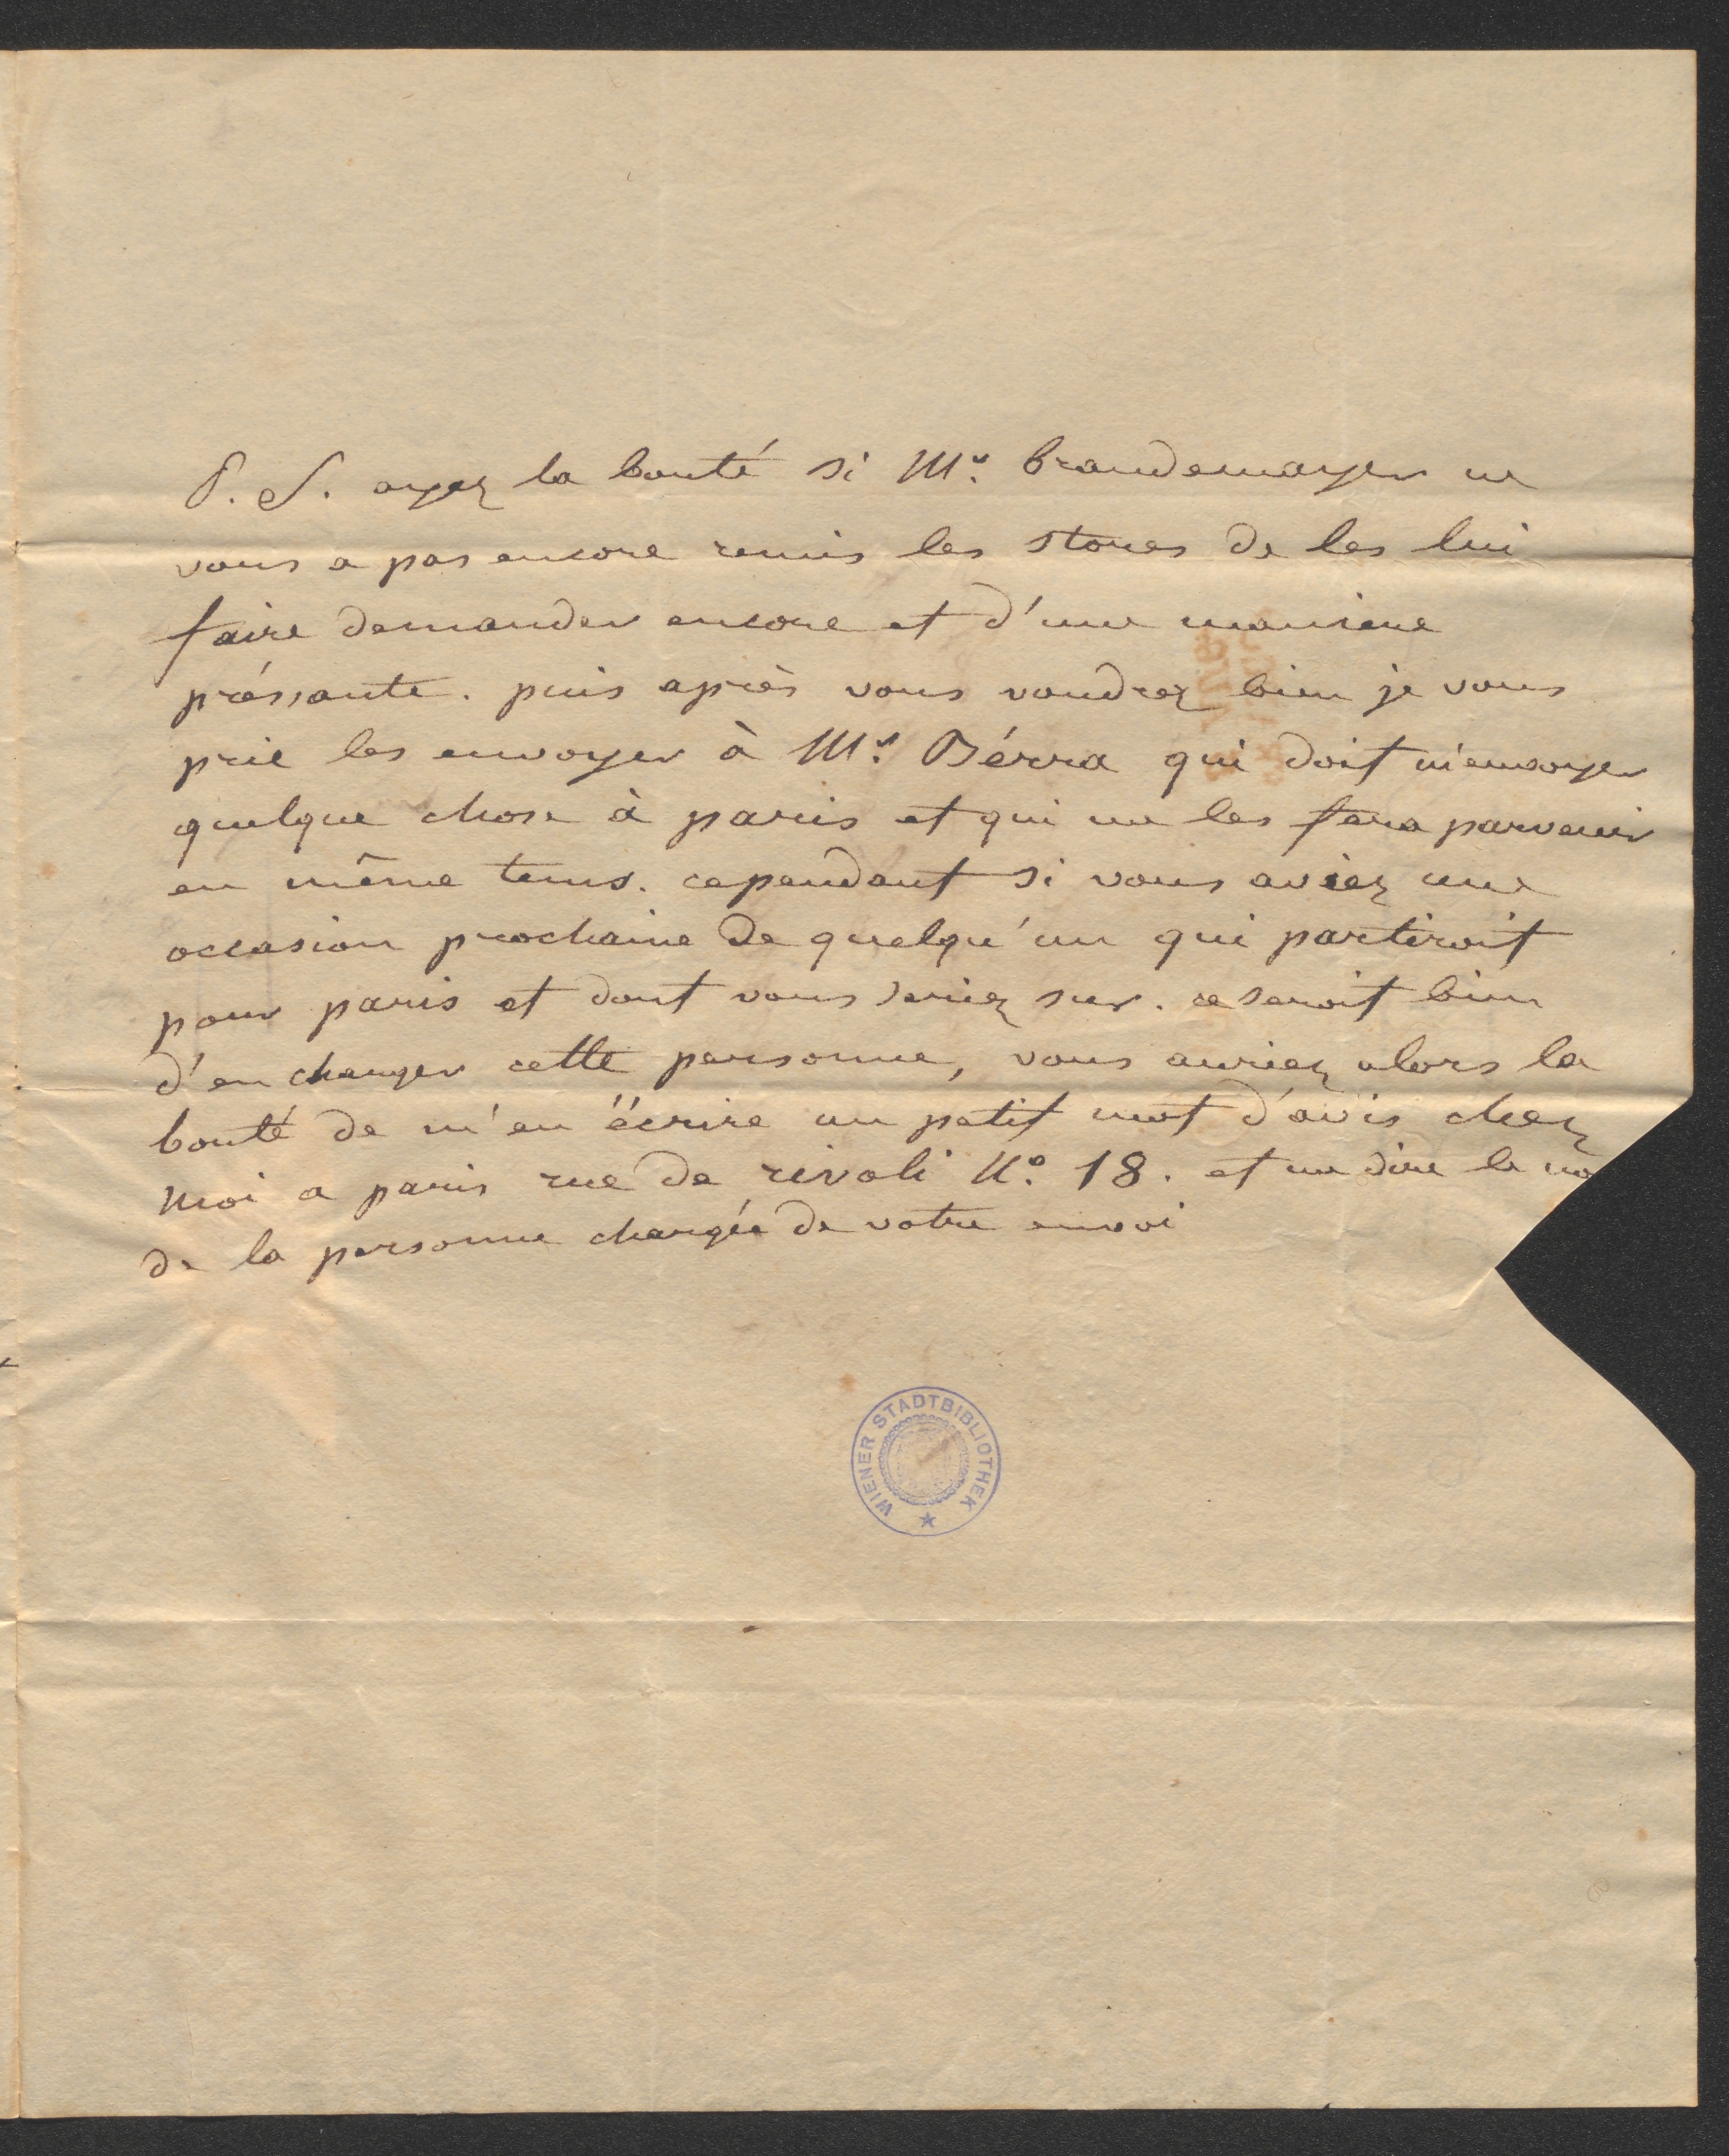 P. S. ayez la bonté si Mr. brandemayer ne
vous a pas encore remis les stores de les lui
faire demander encore et d'une maniere
préssante. puis après vous voudrez bien je vous
prie les envoyer à Mr. Bérra qui doit m'envoyer
quelque chose à paris et qui me les fera parvenir
en même tems. cependant si vous aviez une
occasion prochaine de quelqu'un qui partiroit
pour paris et dont vous seriez sur. ce seroit bien
d'en charger cette personne, vous auriez alors la
bonté de m'en écrire un petit mot d'avis chez
moi a paris rue de rivoli No. 18. et me dire le no
de la personne chargée de votre envoi
WIENER STADTBIBLIOTHEK